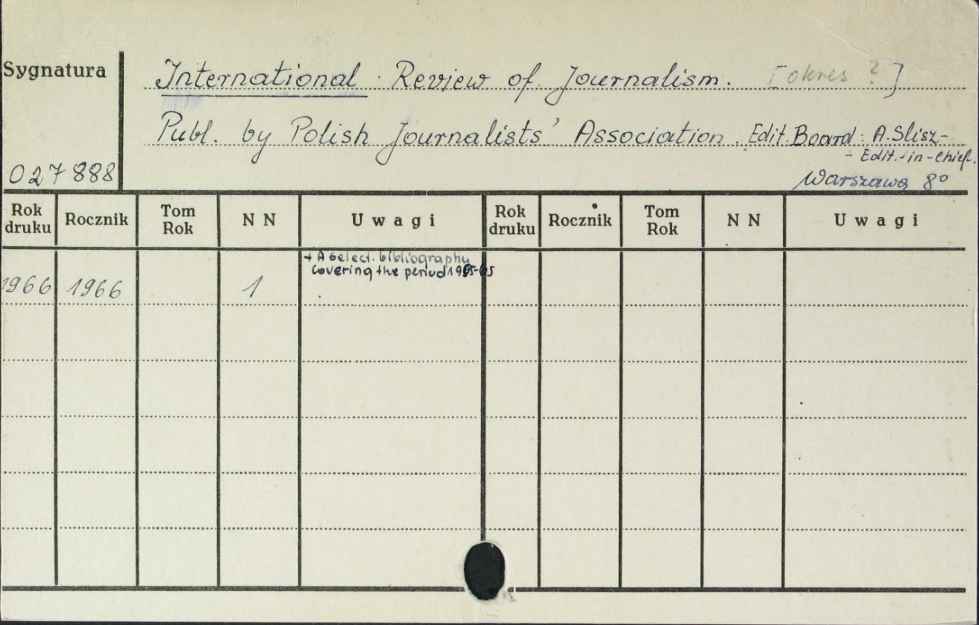 Sygnatura
International Review of Journalism. [okres ?]
Publ. by Polish Journalists' Association. Edit. Board: A. Slisz-
- Edit.-in-chief.
027888
Warszawa 8°
Rok druku Rocznik Tom Rok NN Uwagi Rok druku Rocznik Tom Rok NN Uwagi
+ A select. bibliography
covering the period
1966 1966 1